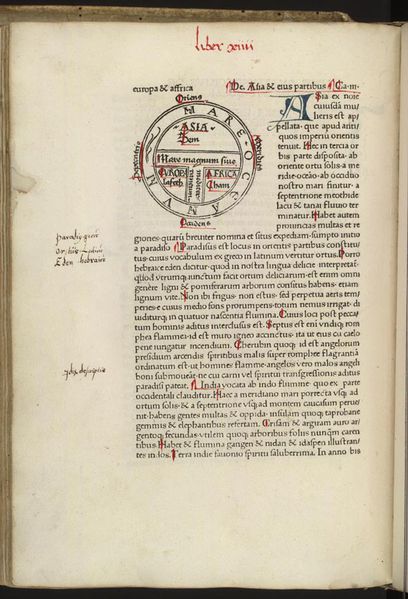 liber xiiii
europa & affrica
De. Asia & eius partibus Ca.iii.
Oriens
MARE OCEANVM
ASIA
Sem
Mare magnum siue
EVROPA
Iafeth
mediterraneum
AFRICA
Cham
Septentrio
Meridies
Occidens
ASia ex noīe
cuiusdā mu-
lieris est ap
pellata. que apud antı
quos imperiū orientis
tenuit. Hec in tercia or
bis parte disposita. ab
oriente ortu solis. a me
ridie. oceāo. ab occidūo
nostro mari finitur. a
septentrione meothide
lacu & tanai fluuio ter
minatur. Habet autem
prouincias multas et re
giones. quarū breuiter nomina et situs expediam. sumpto initio
a paradiso Paradisus est locus in orientis partibus constitu/
tus. cuius vocabulum ex greco in latinum vertitur ortus. Porro
hebraice eden dicitur. quod in nostra lingua delicie interpretat
quod vtrumq iunctum facit ortum deliciarum. est enim omni
genere ligni & pomiferarum arborum consitus. habens etiam
lignum vite. Non ibi frigus. non estus. sed perpetua aeris tem
peries. e cuius medio fons prorumpens. totum nemus irrigat. di
uiditurq in quatuor nascentia flumina. Cuius loci post pecca/
tum hominis aditus interclusus est. Septus est eni vndiq rom
phea flammea. id est muro igneo accinctus. ita ut eius cū celo
pene iungatur incendium. Cherubin quoq id est angelorum
presidium arcendis spiritibus malis super romphee flagrantiā
ordinatum est. ut homines flamme. angelos vero malos angeli
boni submoueāt. ne cui carni vel spiritui transgressionis aditus
paradisi pateat. India vocata ab indo flumine. quo ex parte
occidentali clauditur. Hec a meridiano mari porrecta vsq ad
ortum solis. & a septentrione vsq ad montem caucasum perue/
nit. habens gentes multas & oppida. insulam quoq taprobane
gemmis & elephantibus refertam. Crisam & argiram auro ar/
gentoq fecundas. vtilem quoq arboribus foliis nunq̄m caren
tibus. Habet & flumina gangen & nidan & idaspen illustran/
tes indos. Terra indie fauonio spiritu saluberrima. In anno bis
Eden hebraice